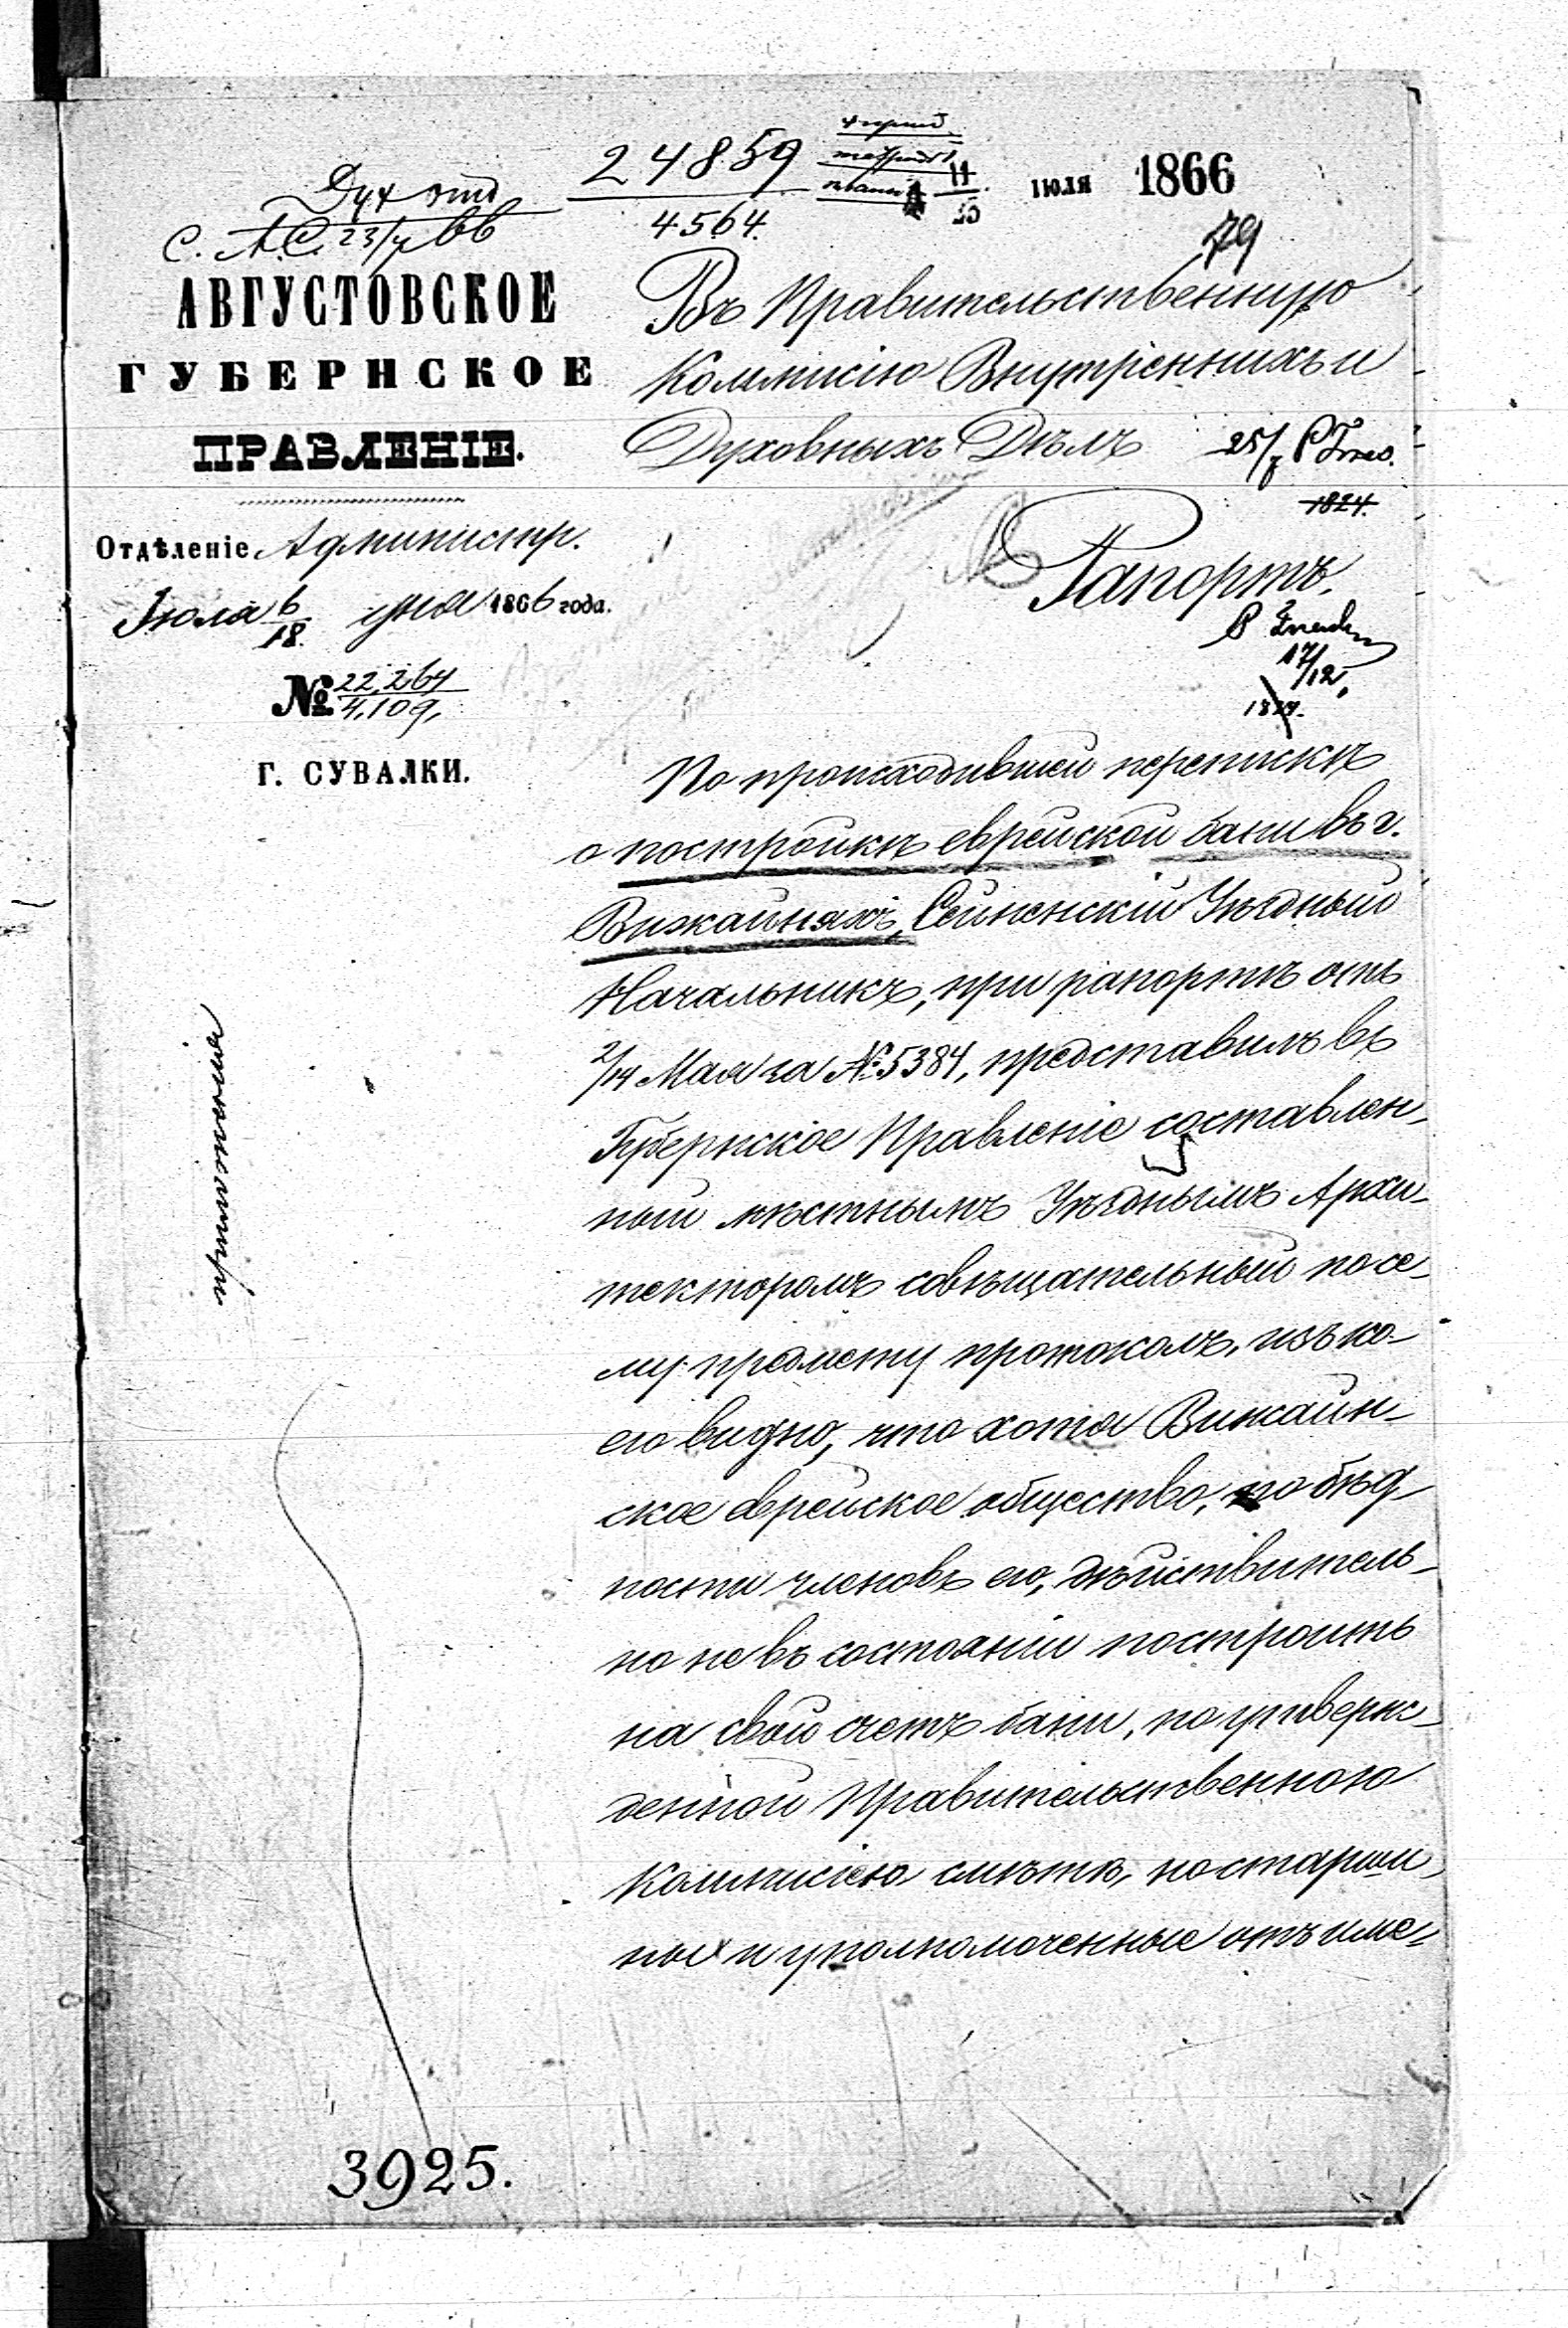 24859
4564.
11
25
ІЮЛЯ 1866
79
С. А. С. 23/7 66
АВГУСТОВСКОЕ
ГУБЕРНСКОЕ
ПРАВЛЕНІЕ.
Отдѣленіе Администр.
Іюля 6/18 дня 1866 года.
№ 22,264
4,109,
Г. СУВАЛКИ.
Въ Правительственную
Коммисію Внутреннихъ и
Духовныхъ Дѣлъ
25/7
1824.
Рапортъ.
17/12
1824.
По происходившей перепискѣ
о постройкѣ еврейской бани въ г.
Вижайняхъ, Сейненскій Уѣздный
Начальникъ, при рапортѣ отъ
2/14 Мая за № 5384, представилъ въ
Губернское Правленіе составлен-
ный мѣстнымъ Уѣзднымъ Архи-
текторомъ совѣщательный по се-
му предмету протоколъ, изъ ко-
его видно, что хотя Вижайн-
ское еврейское общество, по бѣд-
ности членовъ его, дѣйствитель-
но не въ состояніи построить
на свой счетъ бани, по утверж-
денной Правительственною
Коммисіею смѣтѣ, но старши-
ны и уполномоченные отъ име-
приложенія
3925.